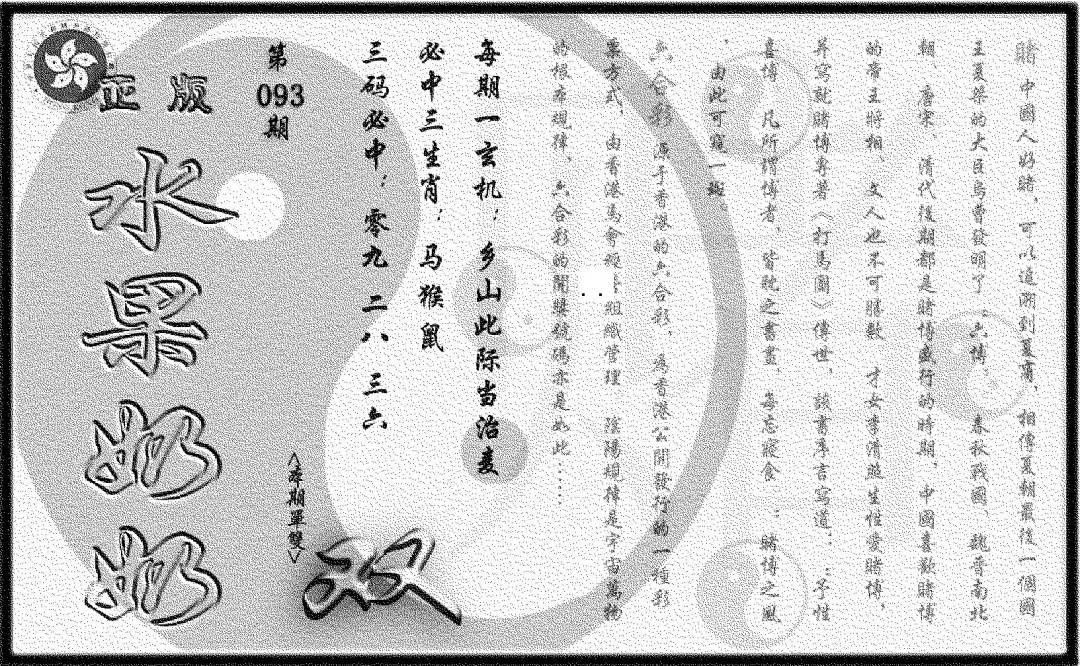 賭中國人好賭，可以追溯到夏商，相傳夏朝最後一個國
王夏桀的大臣烏曹發明了：六博。春秋戰國、魏晉南北
朝、唐宋、清代後期都是賭博盛行的時期，中國喜歡賭博
的帝王將相、文人也不可勝數 才女李清照生性愛賭博，
并寫就賭博專著《打馬圖》傳世，該書序言寫道：：予性
喜博 凡所謂博者，皆耽之書畫，每忘寢食 ：賭博之風
，由此可窺一斑。
六合彩 源于香港的六合彩，為香港公開發行的一種彩
票方式，由香港馬會 組織管理 陰陽規律是宇宙萬物
的根本規律，六合彩的開獎號碼亦是如此……
每期一玄机：乡山此际当治麦
必中三生肖：马猴鼠
三码必中：零九 二八 三六
第
093
期
<本期單雙>
双
正版
水果奶奶